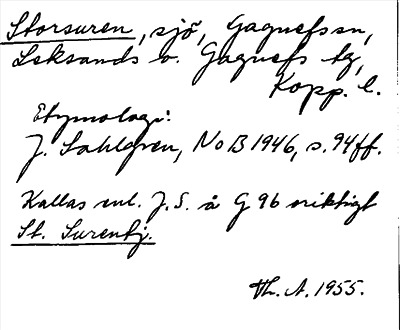 Storsuren, sjö, Gagnefs sn,
Leksands o. Gagnefs tg,
Kopp. l.
Etymologi:
J. Sahlgren, NoB 1946, s. 94ff.
Kallas enl. J. S. å G 96 oriktigt
St. Surentj.
Th. A. 1955.